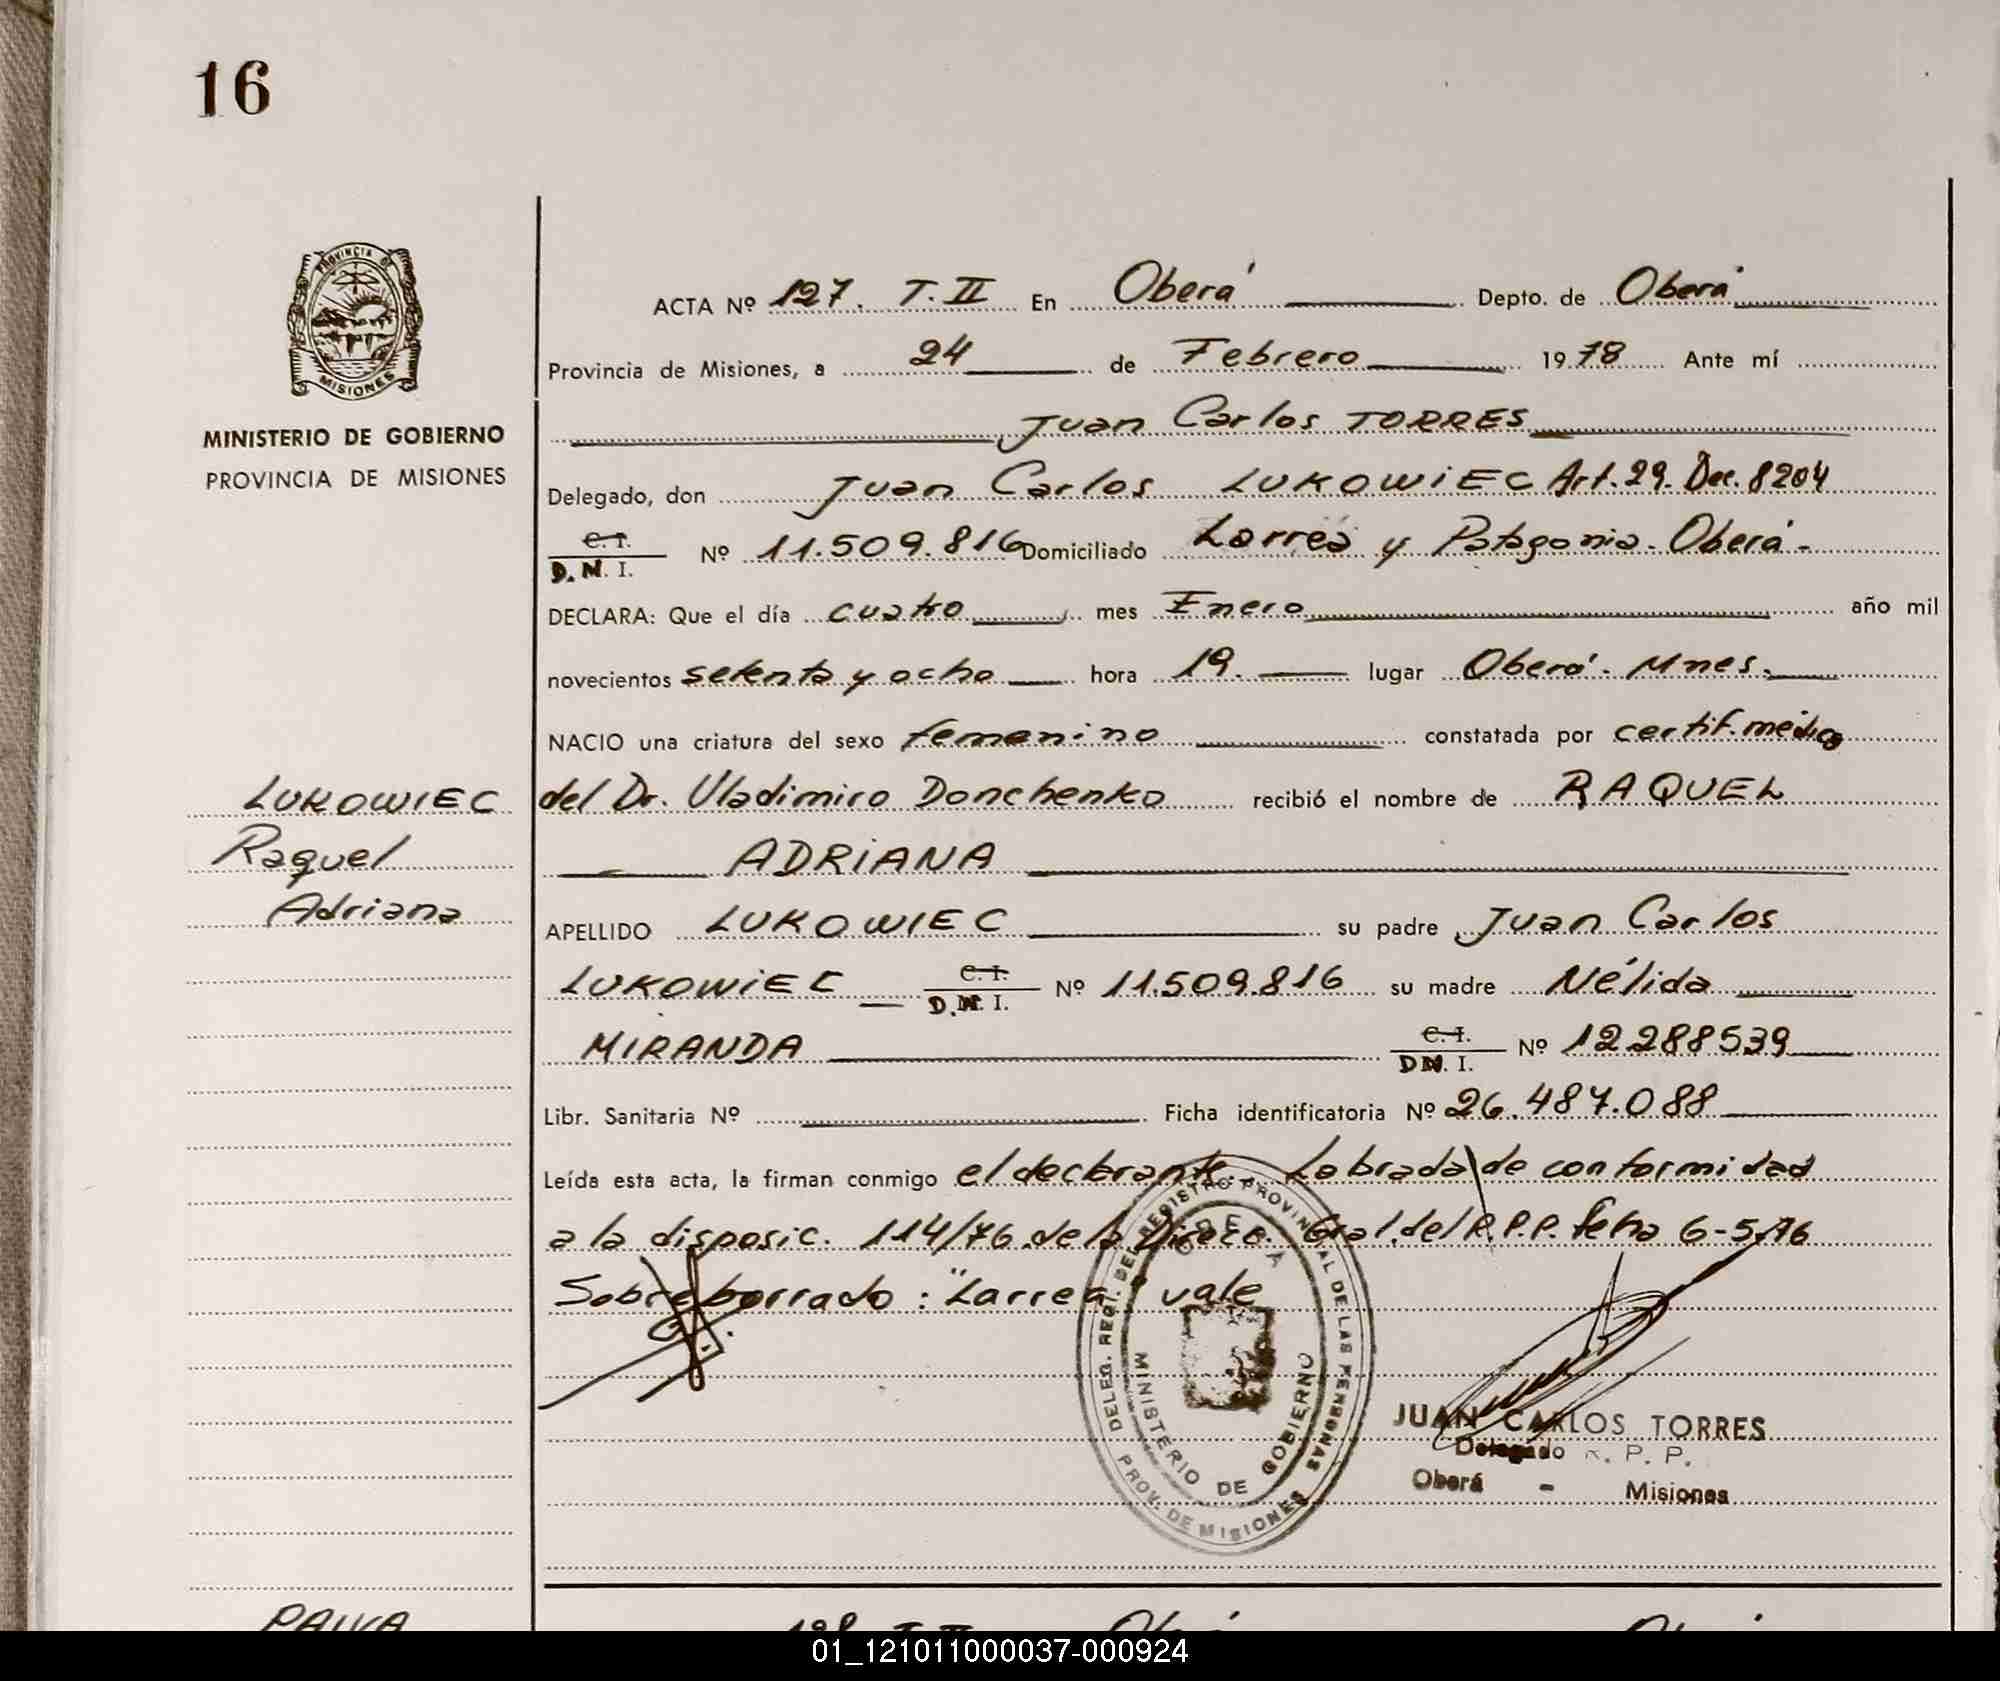 16
PROVINCIA DE
MISIONES
MINISTERIO DE GOBIERNO
PROVINCIA DE MISIONES
LUKOWIEC
Raquel
Adriana
ACTA Nº 127. T. II En Oberá Depto. de Oberá
Provincia de Misiones, a 24 de Febrero 1978 Ante mí
Juan Carlos TORRES
Delegado, don Juan Carlos LUKOWiEC Art. 29. Dec. 8204
C. I.
D. N. I. Nº 11.509.816 Domiciliado Larrea y Patagonia - Oberá -
DECLARA: Que el día cuatro mes Enero año mil
novecientos setenta y ocho hora 19. lugar Oberá - Mnes.
NACIO una criatura del sexo femenino constatada por certif. médico
del Dr. Vladimiro Donchenko recibió el nombre de RAQUEL
ADRiANA
APELLIDO LUKOWIEC su padre Juan Carlos
LUKOWiEC C. I. D. N. I. Nº 11.509.816 su madre Nélida
MIRANDA C. I. D N. I. Nº 12288539
Libr. Sanitaria Nº Ficha identificatoria Nº 26.487.088
Leída esta acta, la firman conmigo el declarante. Labrada de conformidad
a la disposic. 114/76 de la Direcc. Gral. del R.P.P. fecha 6-5-76
Sobreborrado: "Larrea" vale
DELEG. REGL. DEL REGISTRO PROVINCIAL DE LAS PERSONAS
OBERA
MINISTERIO DE GOBIERNO
PROV. DE MISIONES
JUAN CARLOS TORRES
Delegado R. P. P.
Oberá - Misiones
PAIVA
128 T. II Oberá Oberá
01_121011000037-000924